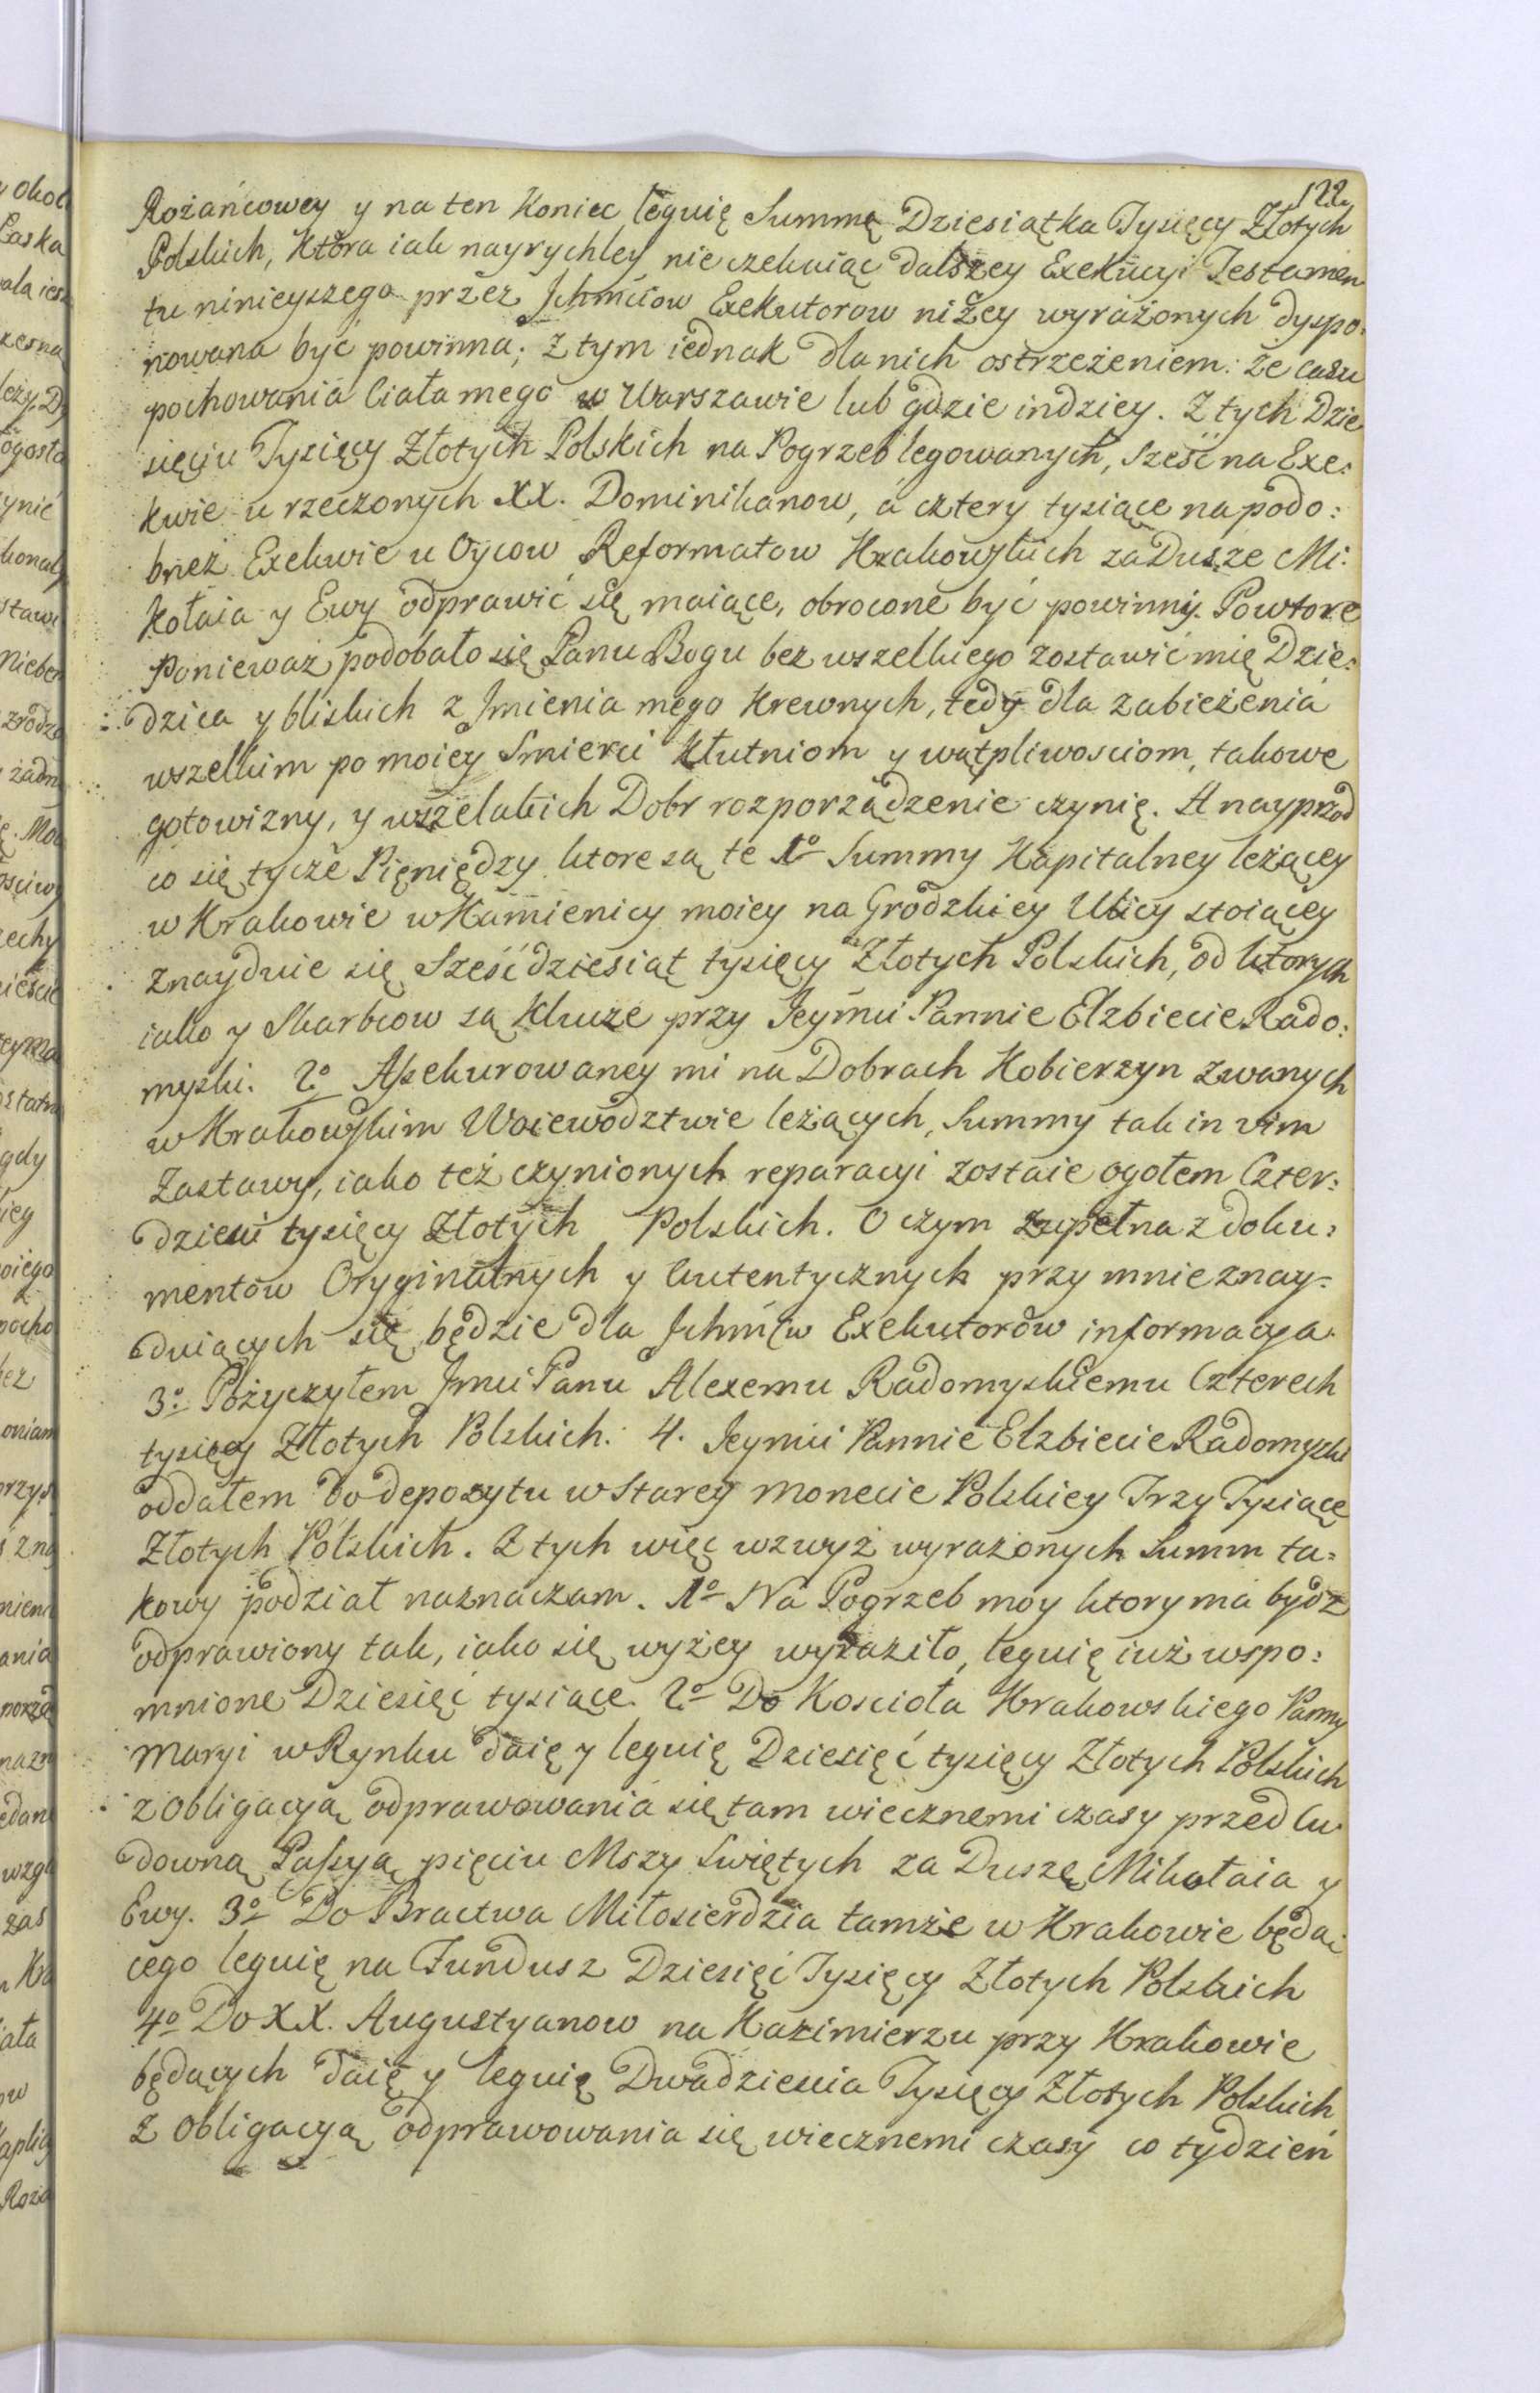 122
Rożańcowey y na ten Koniec leguię Summę Dziesiątka Tysięcy Złotych
Polskich, Ktora iak nayrychley nie czekaiąc dalszey Exekucyi Testamen
tu ninieyszego przez Jchmciow Exekutorow niżey wyrażonych dyspo:
nowana być powinna; z tym iednak dla nich ostrzeżeniem: że casu
pochowania Ciała mego w Warszawie lub gdzie indziey. Z tych Dzie
sięciu Tysięcy Złotych Polskich na Pogrzeb legowanych, sześć na Exe:
kwie u rzeczonych XX. Dominikanow, á cztery tysiące na podo:
bneż Exekwie u Oycow Reformatow Krakowskich za Dusze Mi:
kołaia y Ewy odprawić się maiące, obrocone być powinny. Powtore
Ponieważ podobało się Panu Bogu bez wszelkiego zostawić mię Dzie:
dzica y bliskich z Jmienia mego Krewnych, tedy dla zabieżenia
wszelkim po moiey Smierci Kłutniom y wątpliwosciom, takowe
gotowizny, y wszelakich Dobr rozporządzenie czynię. A nayprzod
co się tycze Pieniędzy ktore są te 1o Summy Kapitalney leżącey
w Krakowie w Kamienicy moiey na Grodzkiey Ulicy stoiącey
znayduie się Sześćdziesiąt tysięcy Złotych Polskich, od ktorych
iako y Skarbcow są Klucze przy Jeymci Pannie Elzbiecie Rado:
myski. 2o Assekurowaney mi na Dobrach Kobierzyn zwanych
w Krakowskim Woiewodztwie leżących, Summy tak in vim
Zastawy, iako też czynionych reparacyi zostaie ogołem Czter:
dzieści tysięcy Złotych Polskich. O czym zupełna z doku:
mentow Oryginalnych y Autentycznych przy mnie znay:
duiących się będzie dla Jchmćw Exekutorów informacya.
3o Pożyczyłem Jmci Panu Alexemu Radomyskiemu Czterech
tysięcy Złotych Polskich. 4. Jeymci Pannie Elzbiecie Radomyski
oddałem do depozytu w starey monecie Polskiey Trzy Tysiące
Złotych Polskich. Z tych więc wzwyż wyrażonych Summ ta:
kowy podział naznaczam. 1o Na Pogrzeb moy ktory ma bydź
odprawiony tak, iako się wyżey wyraziło, leguię iuż wspo:
mnione Dziesięć tysiące. 2o Do Kościoła Krakowskiego Panny
Maryi w Rynku daię y leguię Dziesięć tysięcy Złotych Polskich
z obligacyą odprawowania się tam wiecznemi czasy przed Cu
downą Passyą pięciu Mszy Swiętych za Duszę Mikołaia y
Ewy. 3o Do Bractwa Miłosierdzia tamże w Krakowie będą
cego leguię na Fundusz Dziesięć Tysięcy Złotych Polskich
4o Do XX. Augustyanow na Kazimierzu przy Krakowie
będących daię y leguię Dwadzieścia Tysięcy Złotych Polskich
z obligacyą odprawowania się wiecznemi czasy co tydzień